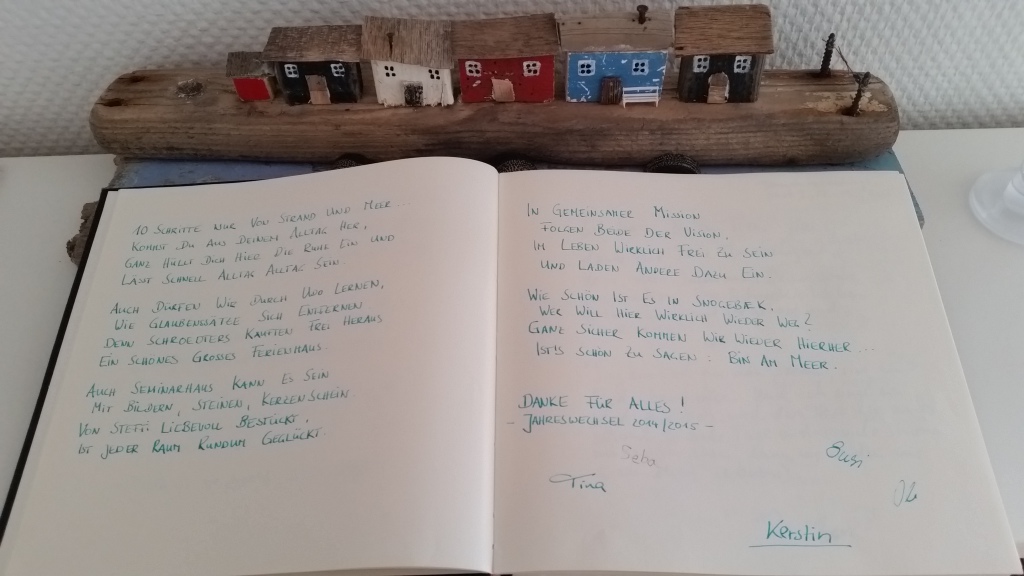 10 SCHRITTE NUR VON STRAND UND MEER...
KOMMST DU AUS DEINEM ALLTAG HER,
GANZ HÜLLT DICH HIER DIE RUHE EIN UND
LÄSST SCHNELL ALLTAG ALLTAG SEIN.
AUCH DURFTEN WIR DURCH UDO LERNEN,
WIE GLAUBENSSÄTZE SICH ENTFERNEN
DENN SCHROEDTERS KAUFTEN FREI HERAUS
EIN SCHÖNES GROSSES FERIENHAUS.
AUCH SEMINARHAUS KANN ES SEIN
MIT BILDERN, STEINEN, KERZENSCHEIN.
VON STEFFI LIEBEVOLL BESTÜCKT,
IST JEDER RAUM RUNDUM GEGLÜCKT.
IN GEMEINSAMER MISSION
FOLGEN BEIDE DER VISION,
IM LEBEN WIRKLICH FREI ZU SEIN
UND LADEN ANDERE DAZU EIN.
WIE SCHÖN IST ES IN SNOGEBÆK,
WER WILL HIER WIRKLICH WIEDER WEG?
GANZ SICHER KOMMEN WIR WIEDER HIERHER...
IST'S SCHÖN ZU SAGEN: BIN AM MEER.
DANKE FÜR ALLES!
- JAHRESWECHSEL 2014/2015 -
Susi
Tina
Kerstin